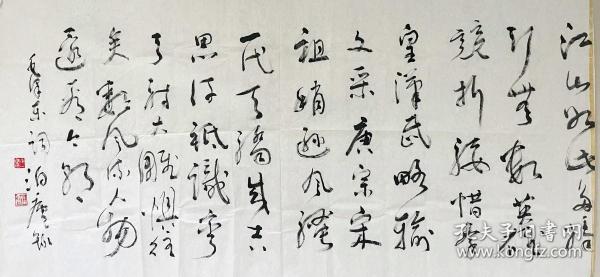 江山如此多娇
引無數英雄
競折腰惜秦
皇漢武略輸
文采唐宗宋
祖稍遜風騷
一代天驕成吉
思汗祗識彎
弓射大雕俱往
矣數風流人物
還看今朝
毛澤東詞
孔夫子旧书网